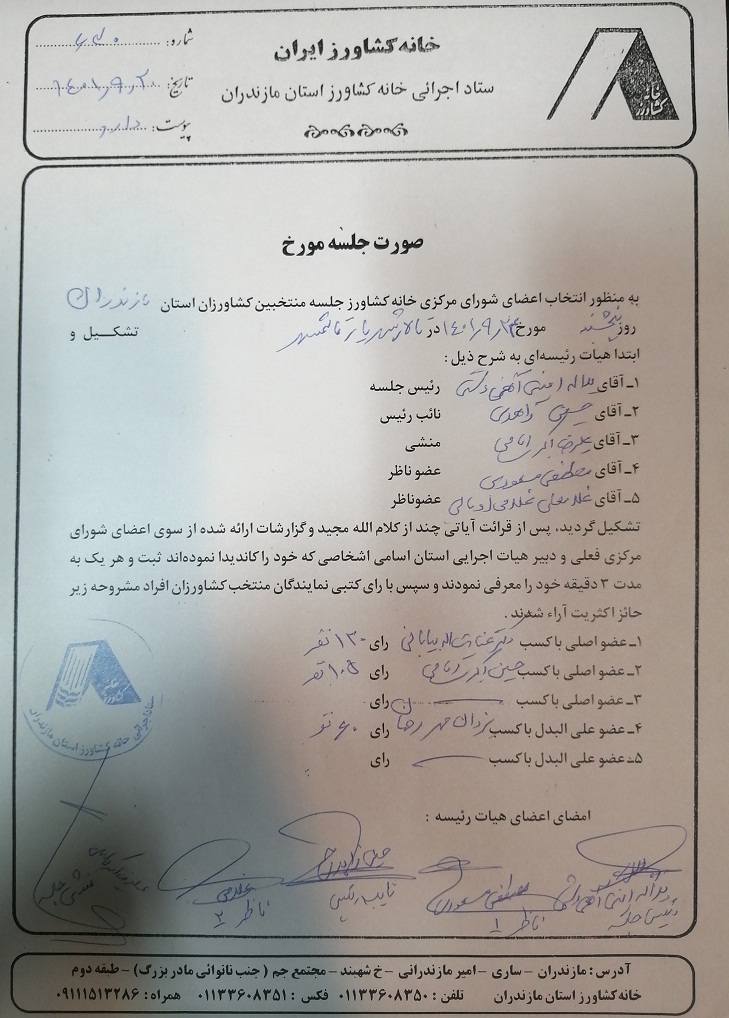 خانه کشاورز ایران
ستاد اجرائی خانه کشاورز استان مازندران
خانه کشاورز
شماره:
تاریخ:
پیوست: دارد
صورت جلسه مورخ
به منظور انتخاب اعضای شورای مرکزی خانه کشاورز جلسه منتخبین کشاورزان استان مازندران
روز پنجشنبه مورخ ۱۴۰۱/۹/۲۴ در تالار شهریار قائمشهر تشکیل و
ابتدا هیات رئیسه‌ای به شرح ذیل :
۱ـ آقای رئیس جلسه
۲ـ آقای زاهدی نائب رئیس
۳ـ آقای علیرضا اکبر منشی
۴ـ آقای مصطفی مسعودی عضو ناظر
۵ـ آقای غلامعلی غلامی عضو ناظر
تشکیل گردید، پس از قرائت آیاتی چند از کلام الله مجید و گزارشات ارائه شده از سوی اعضای شورای
مرکزی فعلی و دبیر هیات اجرایی استان اسامی اشخاصی که خود را کاندیدا نموده‌اند ثبت و هر یک به
مدت ۳ دقیقه خود را معرفی نمودند و سپس با رای کتبی نمایندگان منتخب کشاورزان افراد مشروحه زیر
حائز اکثریت آراء شدند.
۱ـ عضو اصلی با کسب دکتر عنایت اله بیابانی رای ۱۳۰ نفر
۲ـ عضو اصلی با کسب حسین اکبر رای ۱۰۵ نفر
۳ـ عضو اصلی با کسب رای
۴ـ عضو علی البدل با کسب یزدان مهر رای ۶۰ نفر
۵ـ عضو علی البدل با کسب رای
ستاد اجرائی خانه کشاورز استان مازندران
امضای اعضای هیات رئیسه :
رئیس جلسه
مصطفی مسعودی
ناظر ۱
نایب رئیس
غلامی
ناظر ۲
منشی جلسه
آدرس : مازندران - ساری - امیر مازندرانی - خ شهبند - مجتمع جم ( جنب نانوائی مادر بزرگ) - طبقه دوم
خانه کشاورز استان مازندران تلفن : ۰۱۱۳۳۶۰۸۳۵۰ فکس : ۰۱۱۳۳۶۰۸۳۵۱ همراه : ۰۹۱۱۱۵۱۳۲۸۶